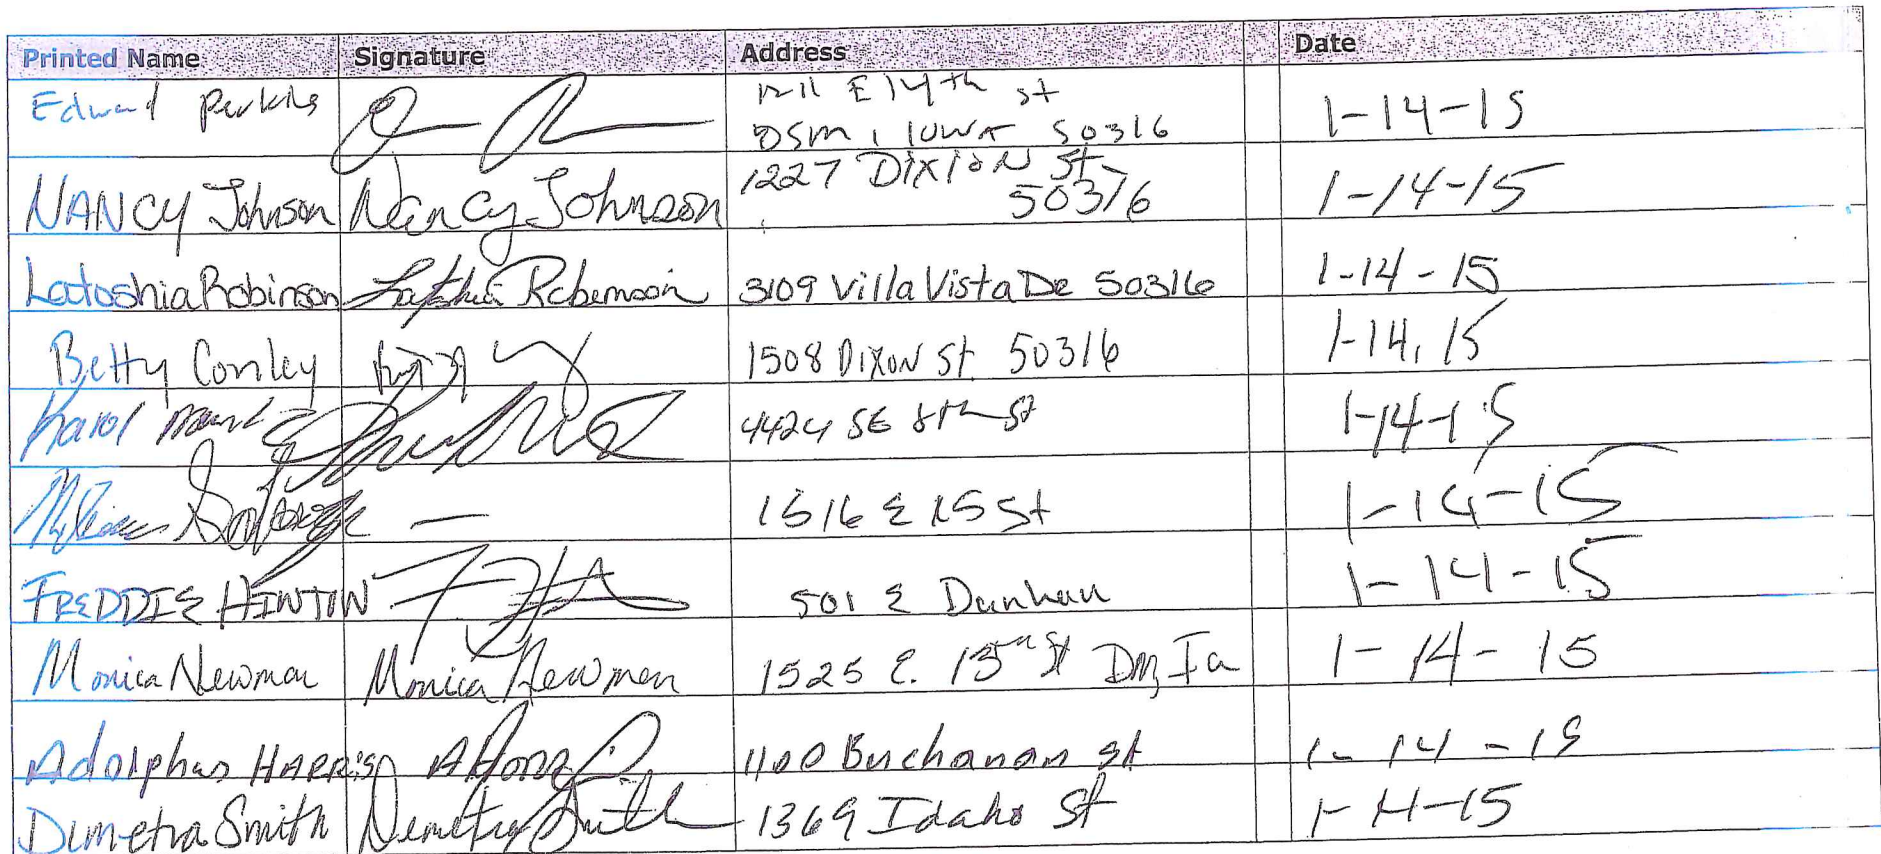 Printed Name Signature Address Date
Edward Perkins 1211 E 14th st
DSM, IOWA 50316 1-14-15
NANCY Johnson Nancy Johnson 1227 DIXION St
50316 1-14-15
Latoshia Robinson Latoshia Robinson 3109 Villa Vista De 50316 1-14-15
Betty Conley 1508 DIXON St 50316 1-14,15
Karol 4424 SE 8th St 1-14-15
1516 E 15 St 1-14-15
FREDDIE HINTON 501 E Dunham 1-14-15
Monica Newman Monica Newman 1525 E. 13th St Dm, Ia 1-14-15
Adolphus HARRIS 1100 Buchanan st 1-14-15
Demetra Smith Demetra Smith 1369 Idaho St 1-14-15